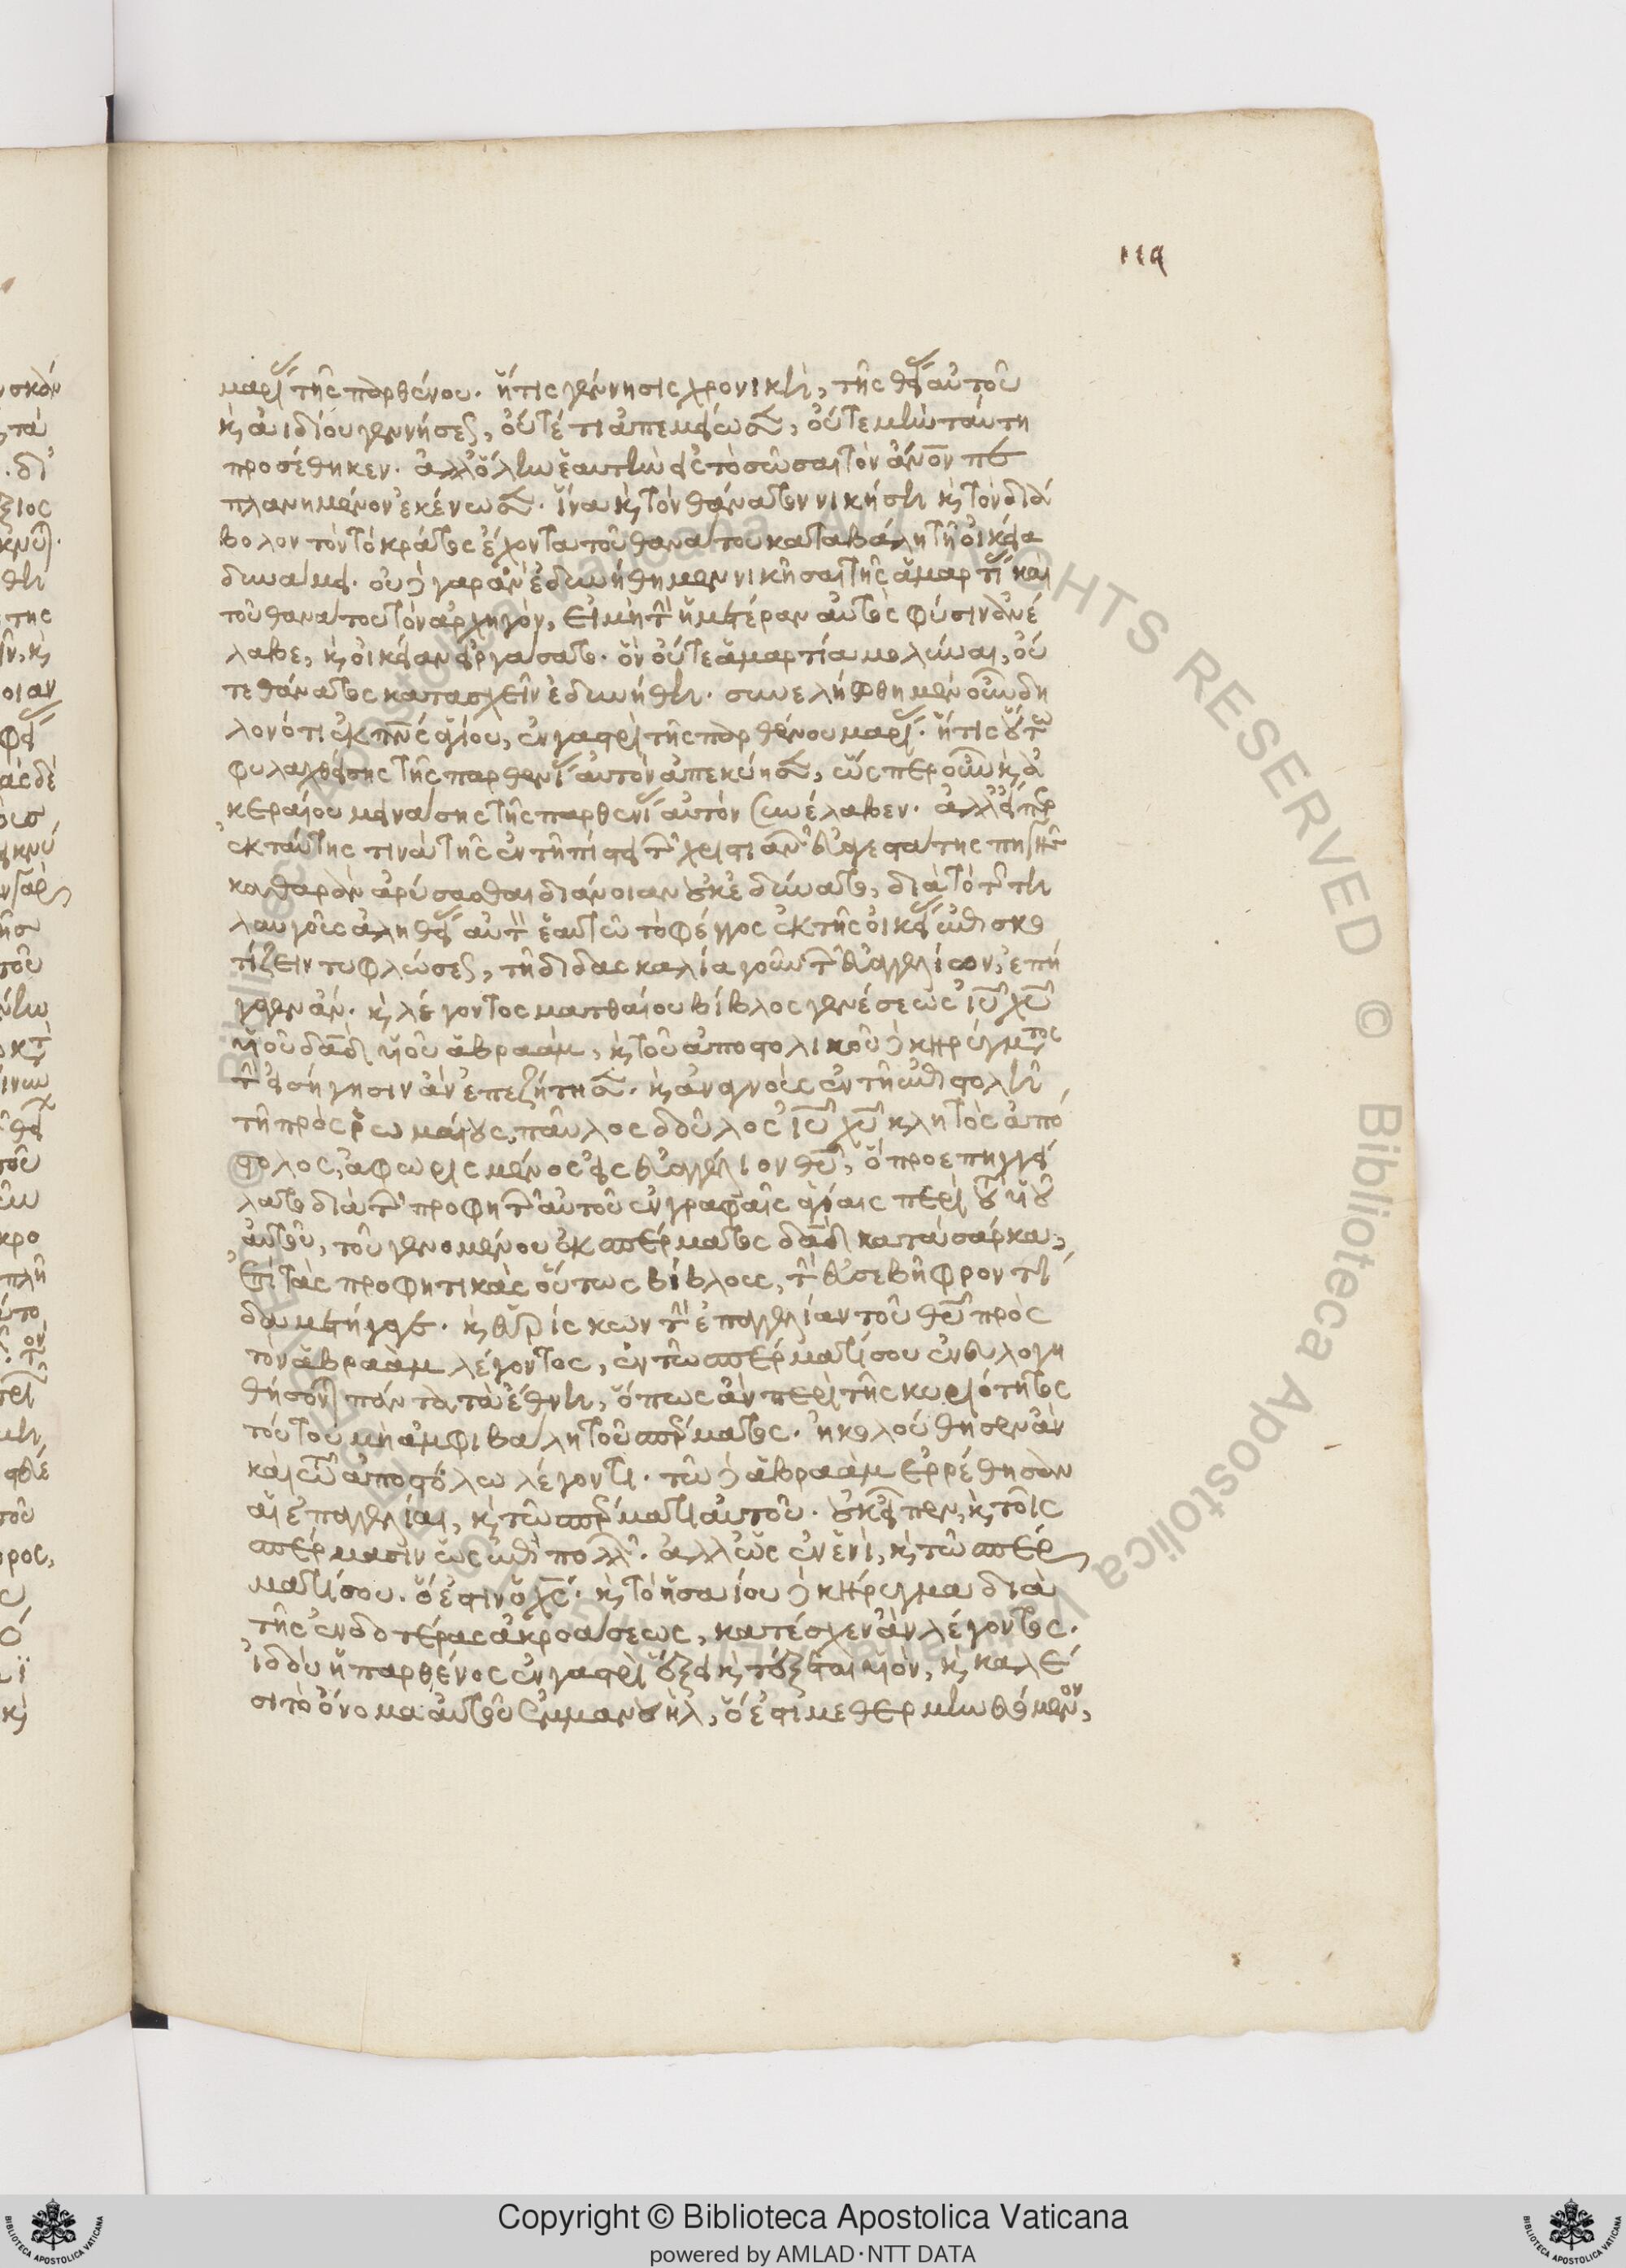 119
μαρίας τῆς παρθένου. ἥτις γέννησις χρονική, τῆς θείας αὐτοῦ
καὶ ἀϊδίου γεννήσεως, οὔτέ τι ἀπεμείωσεν, οὔτε μὴν ταύτη
προσέθηκεν. ἀλλ' ὅλην ἑαυτὴν εἰς τὸ σῶσαι τὸν ἄνον πε
πλανημένον ἐκένωσεν. ἵνα καὶ τὸν θάνατον νικήση καὶ τὸν διά
βολον τὸν τὸ κράτος ἔχοντα τοῦ θανάτου καταβάλη τῆ οἰκεία
δυνάμει. οὐ γὰρ ἂν ἐδυνήθημεν νικῆσαι τῆς ἁμαρτίας καὶ
τοῦ θανάτου τὸν ἀρχηγὸν, εἰ μὴ τὴν ἡμετέραν αὐτὸς φύσιν ἀνέ
λαβε, καὶ οἰκείαν εἰργάσατο. ὃν οὔτε ἁμαρτία μολῦναι, οὔ
τε θάνατος κατασχεῖν ἐδυνήθη. συνελήφθη μὲν οὖν δη
λονότι ἐκ πνς ἁγίου, ἐν γαστρὶ τῆς παρθένου μαρίας. ἥτις οὕτω
φυλαχθείσης τῆς παρθενίας αὐτὸν ἀπεκύησεν, ὥσπερ οὖν καὶ ἀ
κεραίου μεινάσης τῆς παρθενίας αὐτὸν συνέλαβεν. ἀλλ' εἴπερ
ἐκ ταύτης τινὰ τῆς ἐν τῆ πίστει τῶν χριστιανῶν εὐαγεστάτης πηγῆς
καθαρὰν ἀρύσασθαι διάνοιαν οὐκ ἐδύνατο, διὰ τὸ τῆ
λαυγοῦς ἀληθείας αὐτῆς ἑαυτῶ τὸ φέγγος ἐκ τῆς οἰκείας ἐπισκο
τίζειν τυφλώσεως, τῆ διδασκαλία γοῦν τῶν εὐαγγελίων, ἐπή
γαγεν ἄν. καὶ λέγοντος ματθαίου βίβλος γενέσεως ἰῦ χῦ
υἱοῦ δαδ υἱοῦ ἀβραὰμ, καὶ τοῦ ἀποστολικοῦ κηρύγματος
τὴν εἰσήγησιν ἂν ἐπεζήτησεν. καὶ ἀναγνοὺς ἐν τῆ ἐπιστολῆ
τῆ πρὸς ῥωμαίους, παῦλος δοῦλος ἰῦ χῦ κλητὸς ἀπό
στολος, ἀφωρισμένος εἰς εὐαγγέλιον θῦ, ὃ προεπηγγεί
λατο διὰ τῶν προφητῶν αὐτοῦ ἐν γραφαῖς ἁγίαις περὶ τοῦ υἱοῦ
αὐτοῦ, τοῦ γενομένου ἐκ σπέρματος δαδ κατὰ σάρκα,
ἐπὶ τὰς προφητικὰς οὕτως βίβλους, τὴν εὐσεβῆ φροντί
δα μετήγαγε. καὶ εὑρίσκων τὴν ἐπαγγελίαν τοῦ θῦ πρὸς
τὸν ἀβραὰμ λέγοντος, ἐν τῶ σπέρματί σου ἐνευλογη
θήσονται πάντα τὰ ἔθνη, ὅπως ἂν περὶ τῆς κυριότητος
τούτου μὴ ἀμφιβάλη τοῦ σπέρματος. ἠκολούθησεν ἂν
καὶ τῶ ἀποστόλω λέγοντι. τῶ ἀβραὰμ ἐρρέθησαν
αἱ ἐπαγγελίαι, καὶ τῶ σπέρματι αὐτοῦ. οὐκ εἶπεν, καὶ τοῖς
σπέρμασιν ὡς ἐπὶ πολλῶν. ἀλλ' ὡς ἐν ἑνὶ, καὶ τῶ σπέρ
ματί σου. ὅ ἐστιν ὁ χς. καὶ τὸ ἡσαΐου κήρυγμα διὰ
τῆς ἐνδοτέρας ἀκροάσεως, κατέσχεν ἂν λέγοντος.
ἰδοὺ ἡ παρθένος ἐν γαστρὶ ἕξει καὶ τέξεται υἱὸν, καὶ καλέ
σει τὸ ὄνομα αὐτοῦ ἐμμανουὴλ, ὅ ἐστι μεθερμηνευόμενον,
© Biblioteca Apostolica Vaticana
ALL RIGHTS RESERVED
Copyright © Biblioteca Apostolica Vaticana
powered by AMLAD·NTT DATA